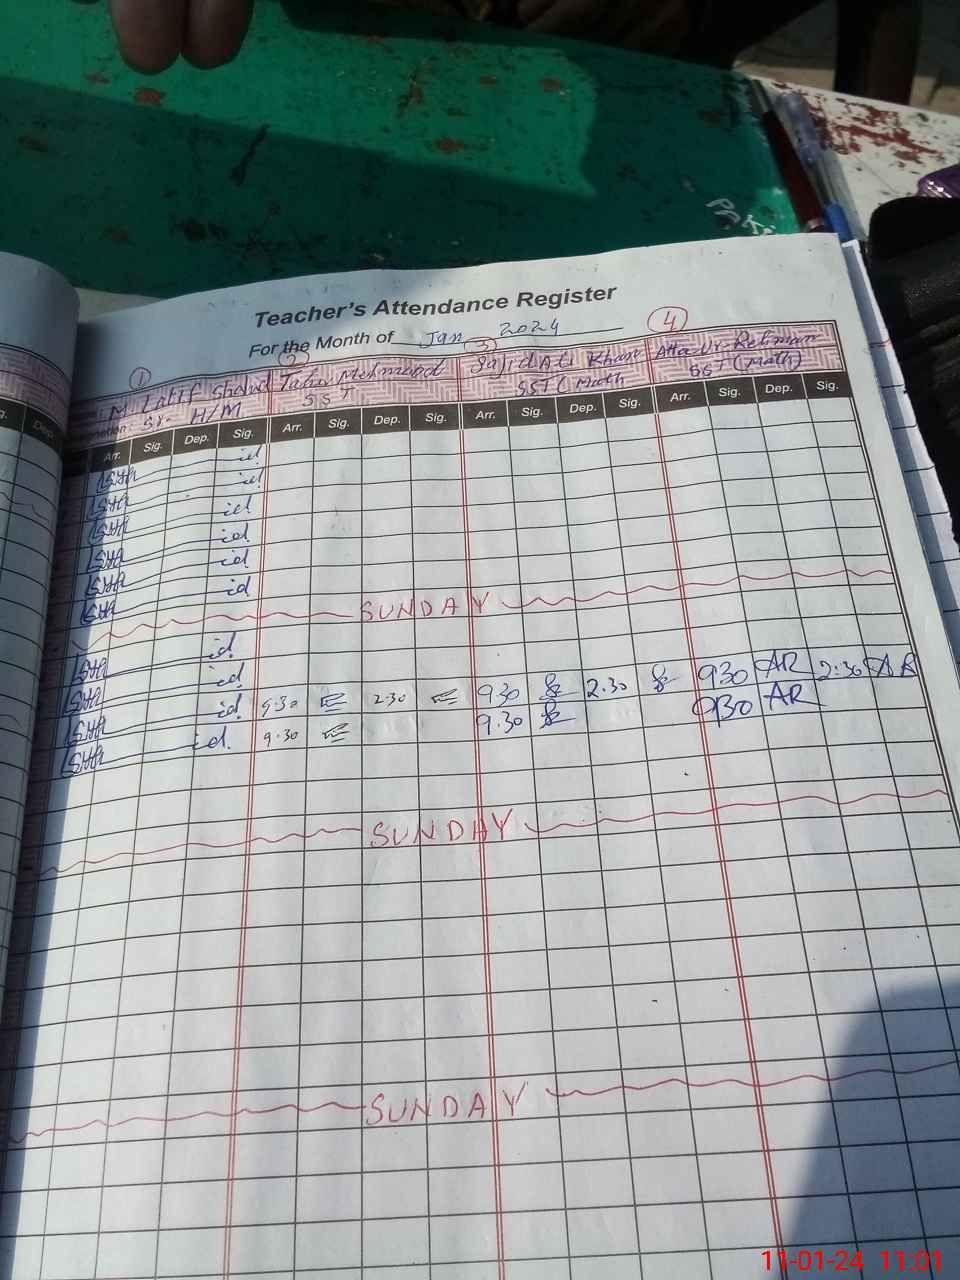 PF
Teacher's Attendance Register
For the Month of Jan 2024
1 2 3 4
M. Latif Shahid Tahir Mehmood Sajid Ali Khan Atta-Ur-Rehman
Sr. H/M SST SST (Math SST (Math)
Dep. Arr. Sig. Dep. Sig. Arr. Sig. Dep. Sig. Arr. Sig. Dep. Sig. Arr. Sig. Dep. Sig.
id
id
id
id
id
id
SUNDAY
id
id
id 9.30 2.30 930 2.30 930 AR 2:30 AR
id. 9.30 9.30 930 AR
SUNDAY
SUNDAY
11-01-24 11:01